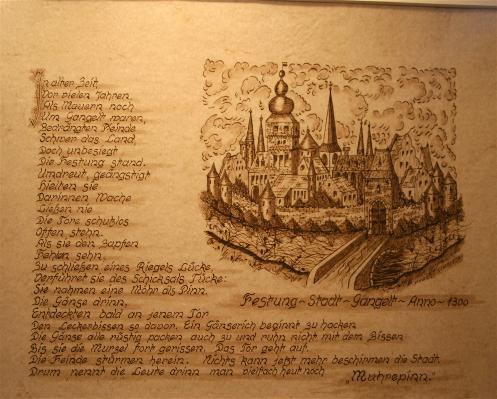 In alter Zeit,
Vor vielen Jahren,
Als Mauern noch
Um Gangelt waren,
Bedrängten Feinde
Schwer das Land.
Doch unbesiegt
Die Festung stand.
Umdreut, geängstigt
Hielten sie
Darinnen Wache
Ließen nie
Die Tore schutzlos
Offen stehn.
Als sie den Zapfen
Fehlen sehn,
Zu schließen eines Riegels Lücke
Verführt sie des Schicksals Tücke:
Sie nahmen eine Möhn als Pinn.
Die Gänse drinn,
Festung~Stadt~Gangelt~Anno~1300
Entdeckten bald an jenem Tor
Den Leckerbissen so davor. Ein Gänserich beginnt zu hacken
Die Gänse alle rüstig packen auch zu und ruhn nicht mit dem Bissen
Bis sie die Wurzel fort gerissen. Das Tor geht auf.
Die Feinde stürmen herein. Nichts kann jetzt mehr beschirmen die Stadt.
Drum nennt die Leute drinn man vielfach heut noch
„Muhrepinn."